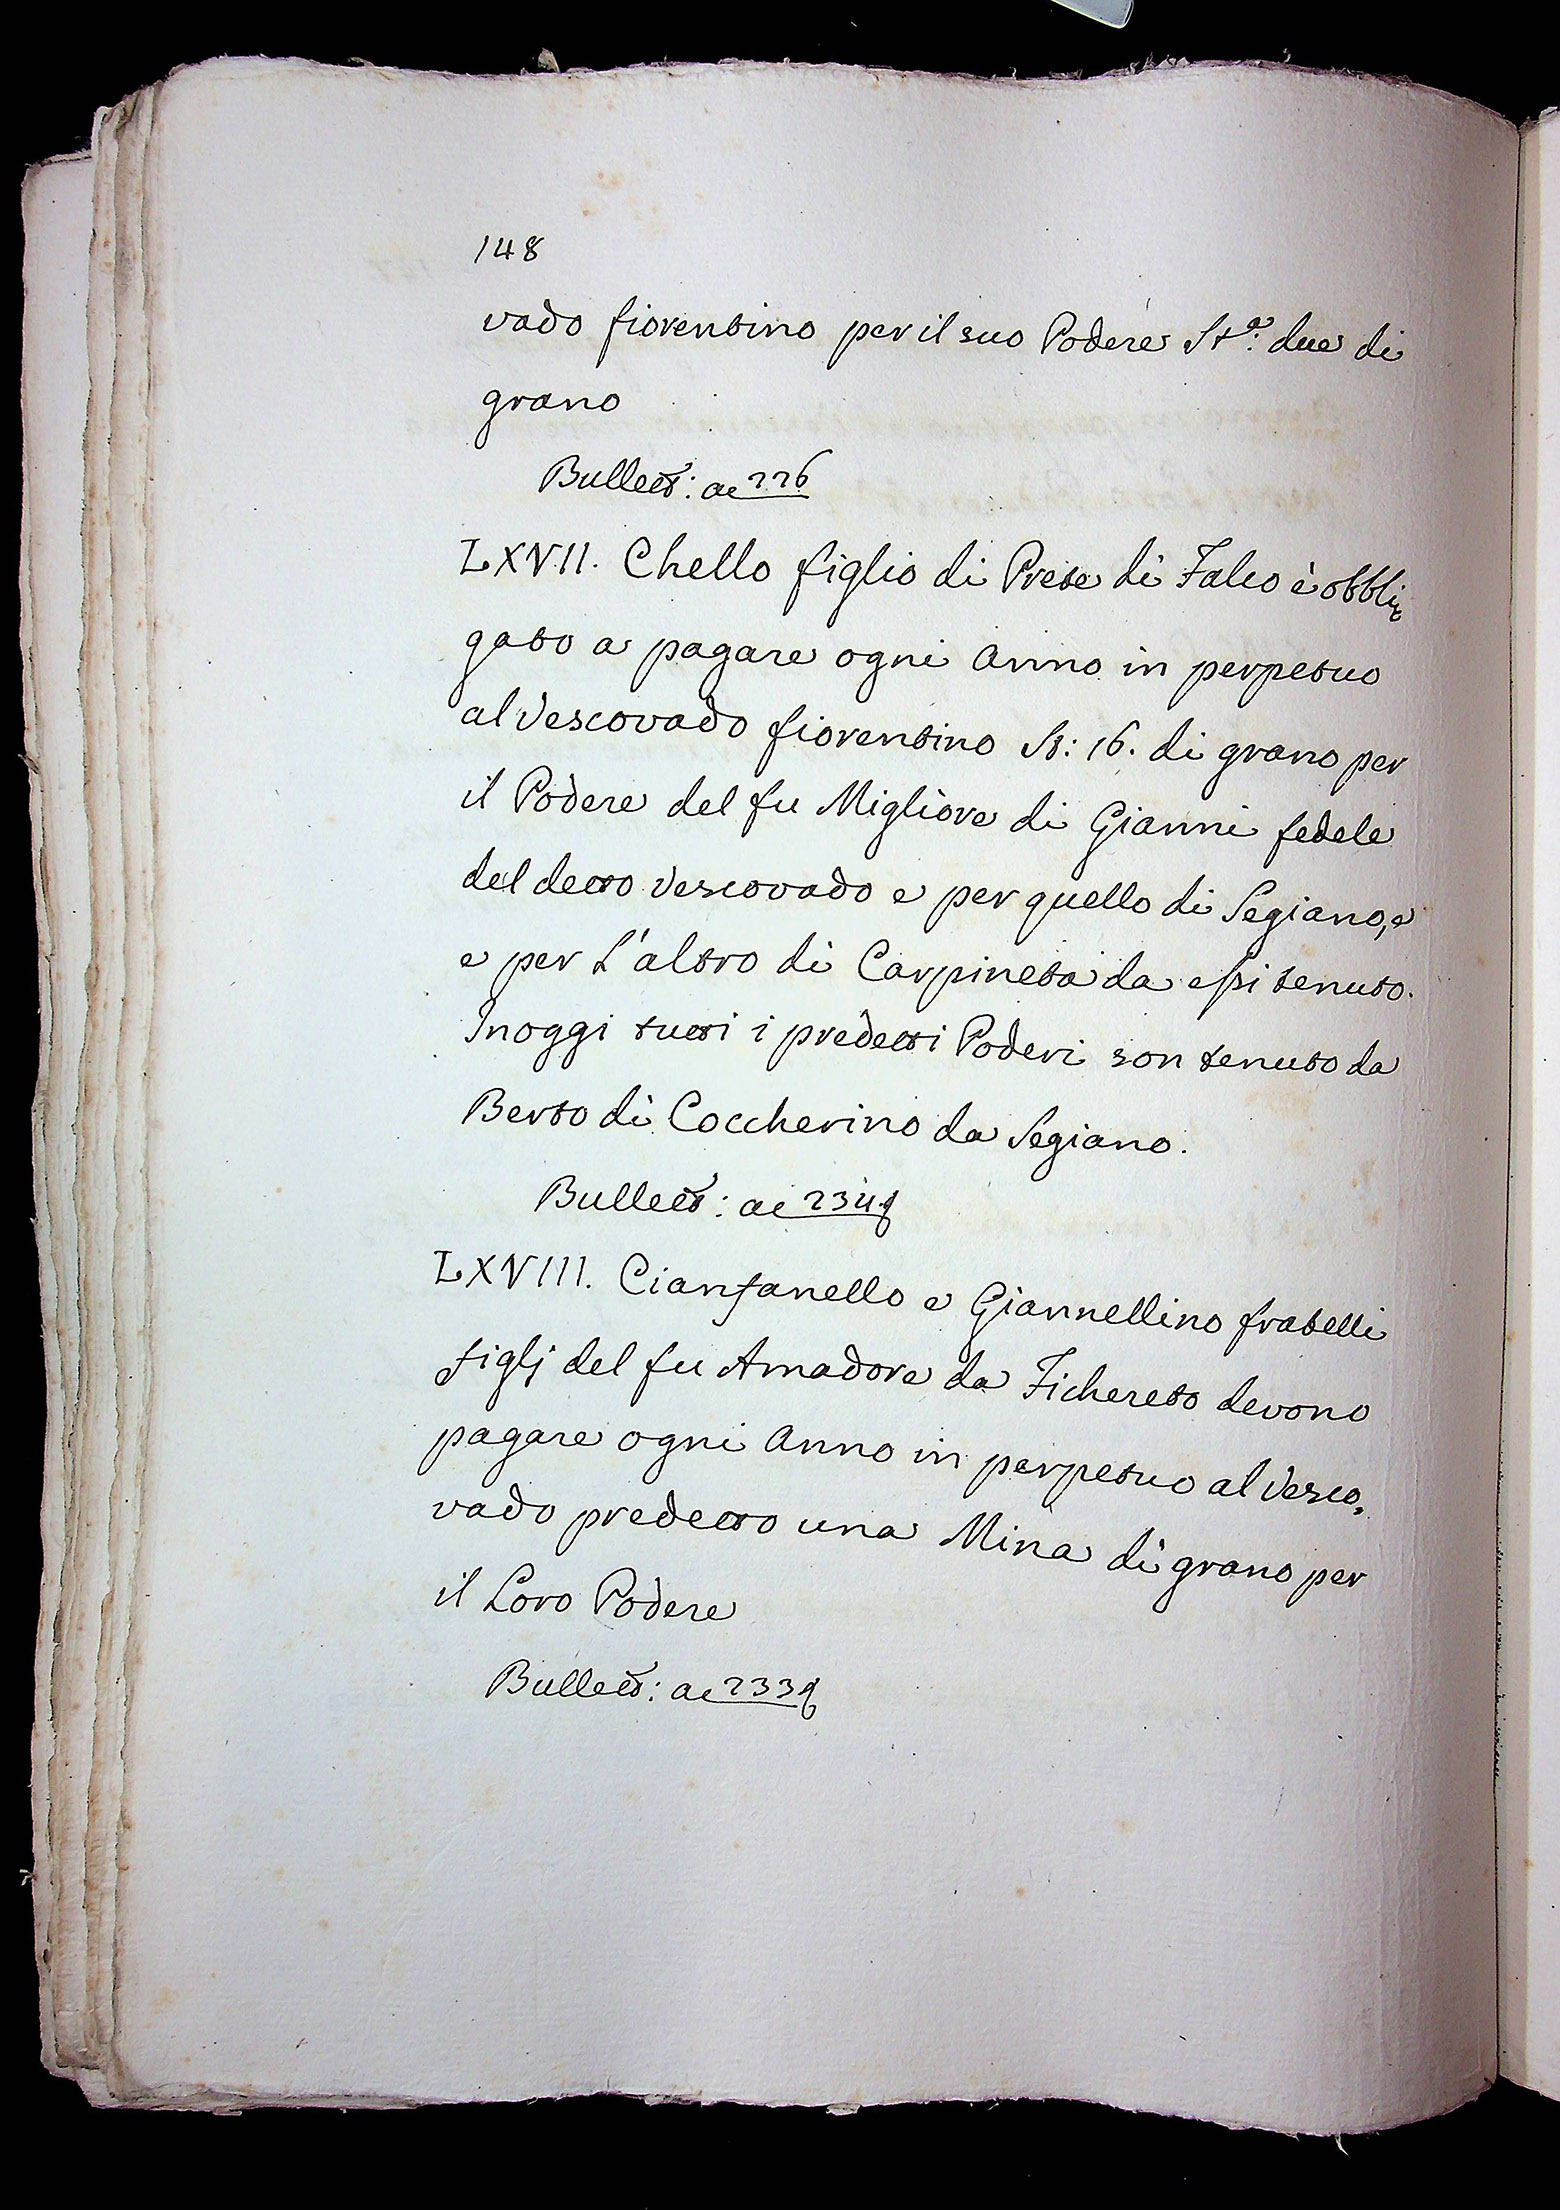 148
vado fiorentino per il suo Podere Sta: due di
grano
Bullett: ac 226
LXVII. Chello figlio di Prete di Falco è obbli=
gato a pagare ogni Anno in perpetuo
al Vescovado fiorentino St: 16. di grano per
il Podere del fu Migliore di Gianni fedele
del detto Vescovado e per quello di Segiano, e
e per L'altro di Carpineta da essi tenuto.
Inoggi tutti i predetti Poderi son tenuto da
Berto di Coccherino da Segiano.
Bullett: ac 234
LXVIII. Cianfanello e Giannellino fratelli
figlj del fu Amadore da Fichereto devono
pagare ogni Anno in perpetuo al Vesco=
vado predetto una Mina di grano per
il Loro Podere
Bullett: ac 233